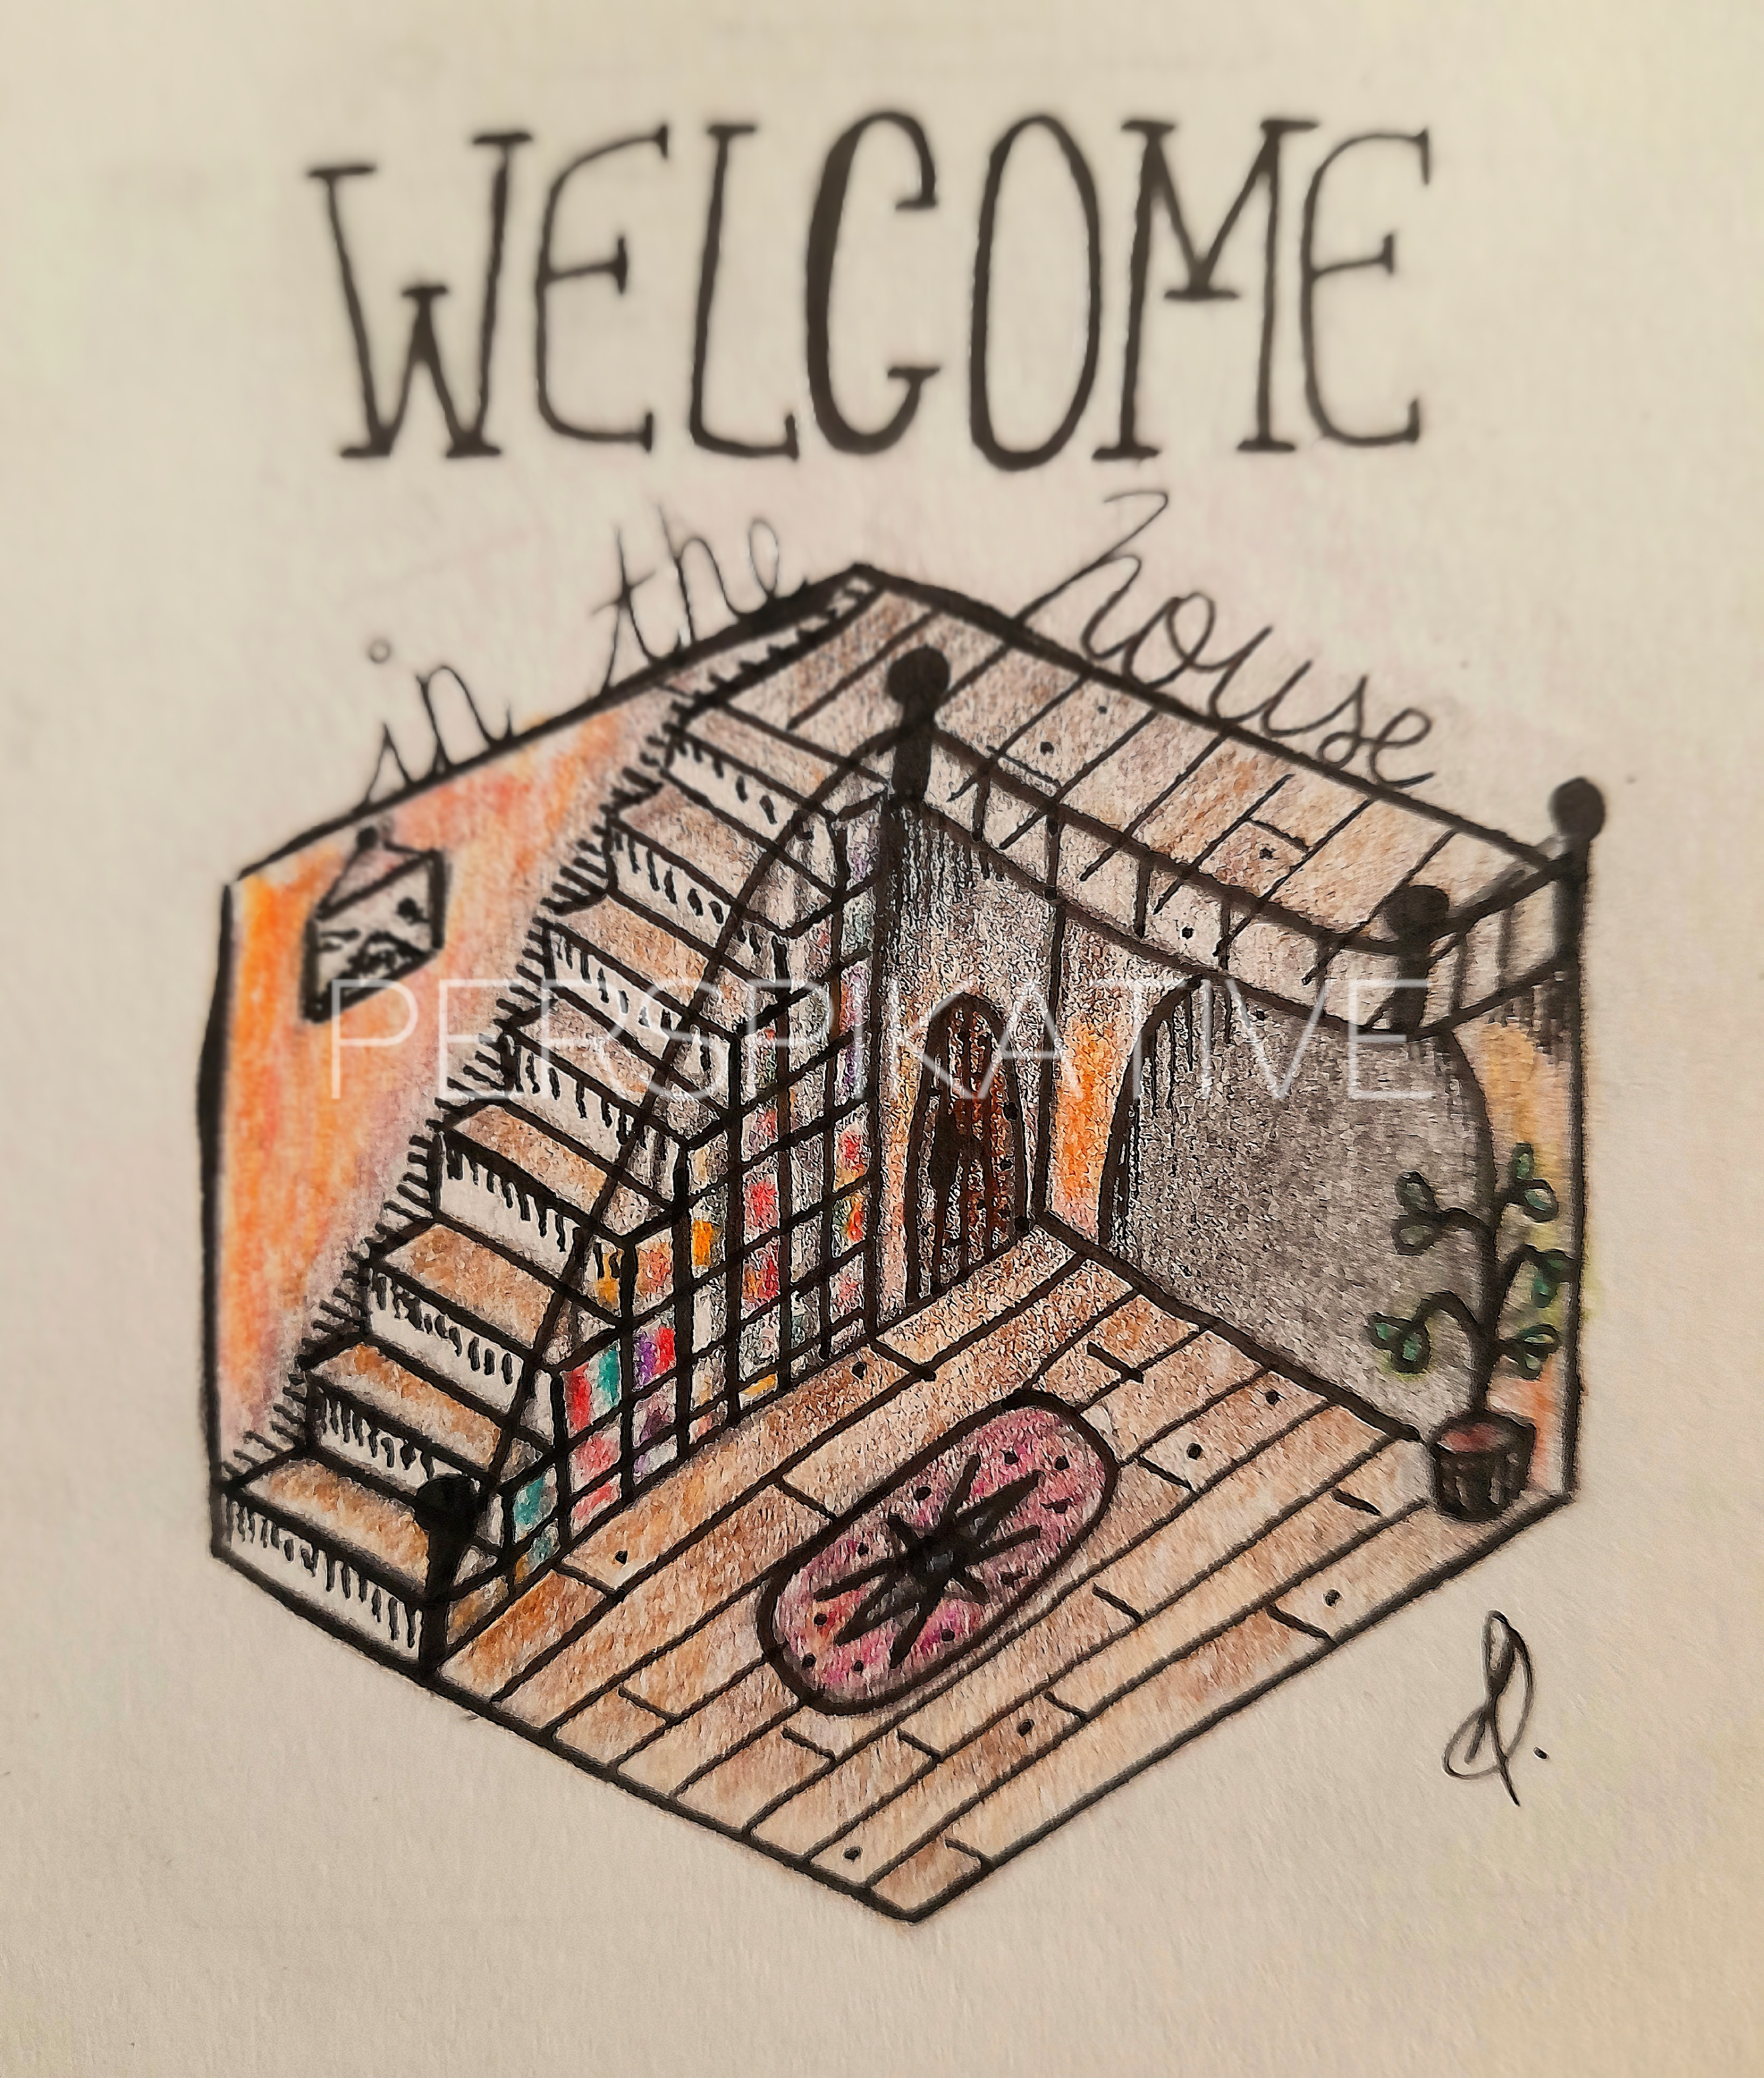 WELCOME
in the house
PERSPIKATIVE